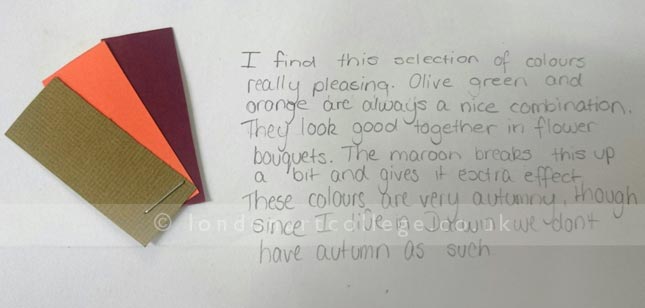 I find this selection of colours
really pleasing. Olive green and
orange are always a nice combination.
They look good together in flower
bouquets. The maroon breaks this up
a bit and gives it extra effect
These colours are very autumny, though
since I live in Darwin we dont
have autumn as such
© londonartcollege.co.uk